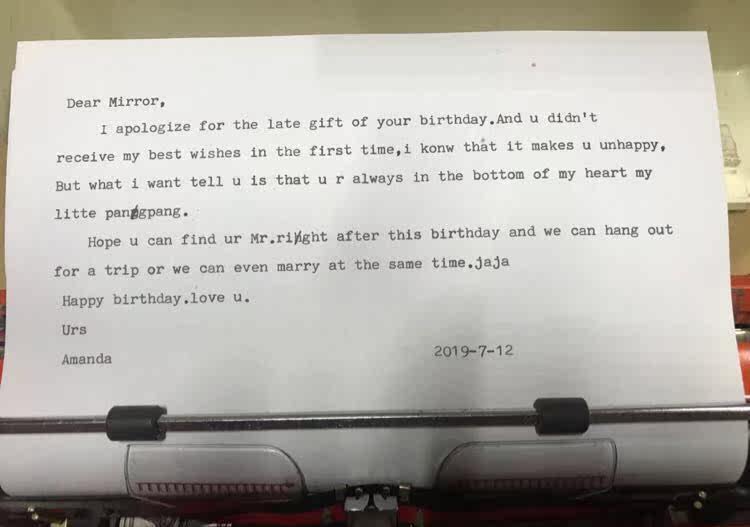 Dear Mirror,
I apologize for the late gift of your birthday.And u didn't
receive my best wishes in the first time,i konw that it makes u unhappy,
But what i want tell u is that u r always in the bottom of my heart my
litte pangpang.
Hope u can find ur Mr.right after this birthday and we can hang out
for a trip or we can even marry at the same time.jaja
Happy birthday.love u.
Urs
Amanda 2019-7-12